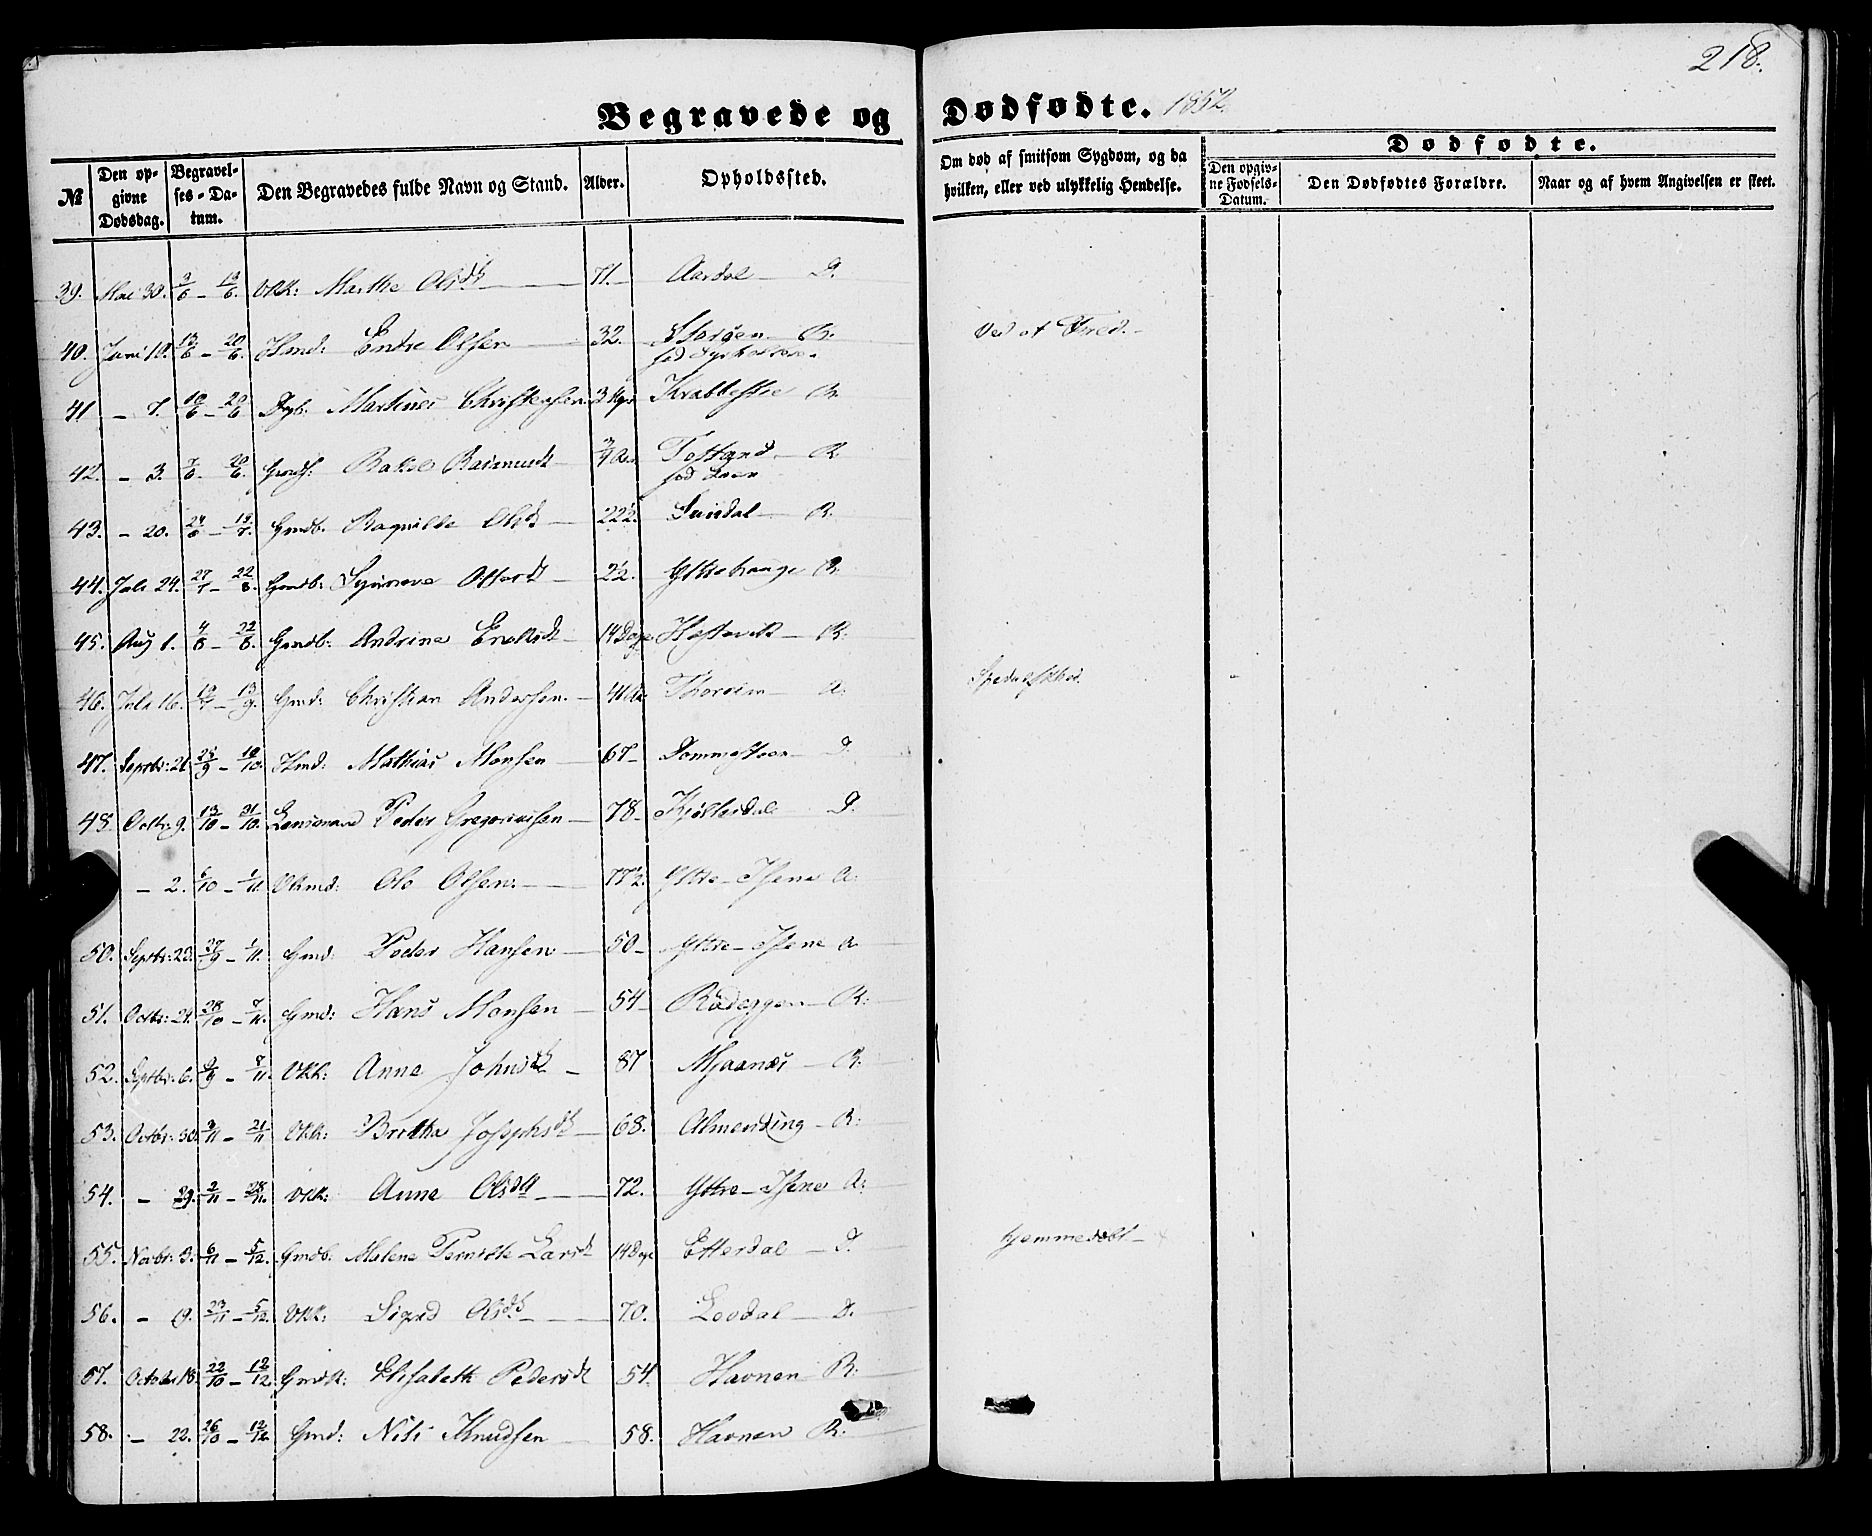 218.
Begravede og Dødfødte. 1852.
№
Den opgivne Dødsdag.
Begravelses-Datum.
Den Begravedes fulde Navn og Stand.
Alder.
Opholdssted.
Om død af smitsom Sygdom, og da hvilken, eller ved ulykkelig Hendelse.
Dødfødte.
Den opgivne Fødsels-Datum.
Den Dødfødtes Forældre.
Naar og af hvem Angivelsen er skeet.
39. Mai 30. 3/6 - 13/6. Vkk: Marthe Olsdt 71. Aardal D.
40. Juni 10. 13/6 - 20/6. Hmd: Endre Olsen 32. R. Ved at
fød
41 - 7. 10/6 - 20/6 Martinus Christensen 3 R.
42. - 3. 7/6 - 20/6. Rasmusdt R.
fød
43. - 20. 24/6 - 18/7. Gmdb. Ragnilde Olsd 22½. Sandal R.
44. Juli 24. 27/7 - 22/8. Gmdb: Synneve 2½. Yttrehauge R.
45. Aug 1. 4/8 - 22/8. Gmdb: Andrine 14 Dage Hestevik R.
46. Juli 16. 19/7 - 19/9. Gmd: Christian Andersen 41 Aar A. Spedalskhed.
47. Septbr: 21 25/9 - 10/10. Hmd: Mathias Monsen 67 D.
48. Octbr: 9. 13/10 - 31/10. Lensmand Peder Gregoriussen 78 D.
- 2. 6/10 - 1/11. Vkmd: Ole Olsen 77½. Yttre-Istene A.
50. Septbr: 22. 27/9 - 1/11. Gmd: Peder Hansen 50 Yttre-Istene A
51. Octbr: 24. 28/10 - 7/11. Gmd: Hans Monsen 54 Rödeggen R.
52. Septbr: 6. 9/9 - 7/11. Vkk: Anne Johnsdt 87 Mjaanæs R.
53. Octbr: 30. 3/11 - 21/11 Vkk: Brithe Josephsdt 68. Almending R.
54. - 29. 2/11 - 28/11. Vkk: Anne Olsdt 72. Yttre-Istene A.
55. Novbr: 3. 6/11 - 5/12. Gmdb. Malene Larsdt 14 Dage Etterdal D. hjemmedøbt
56. - 19. 23/11 - 5/12. Vkk: Sigrid Olsdt 70. D.
57. Octobr 18. 22/10 - 12/12. Gmdk: Elisabeth Pedersdt 54. Havnen R.
58. - 22. 26/10 - 12/12. Gmd: Nils Knudsen 58. Havnen R.